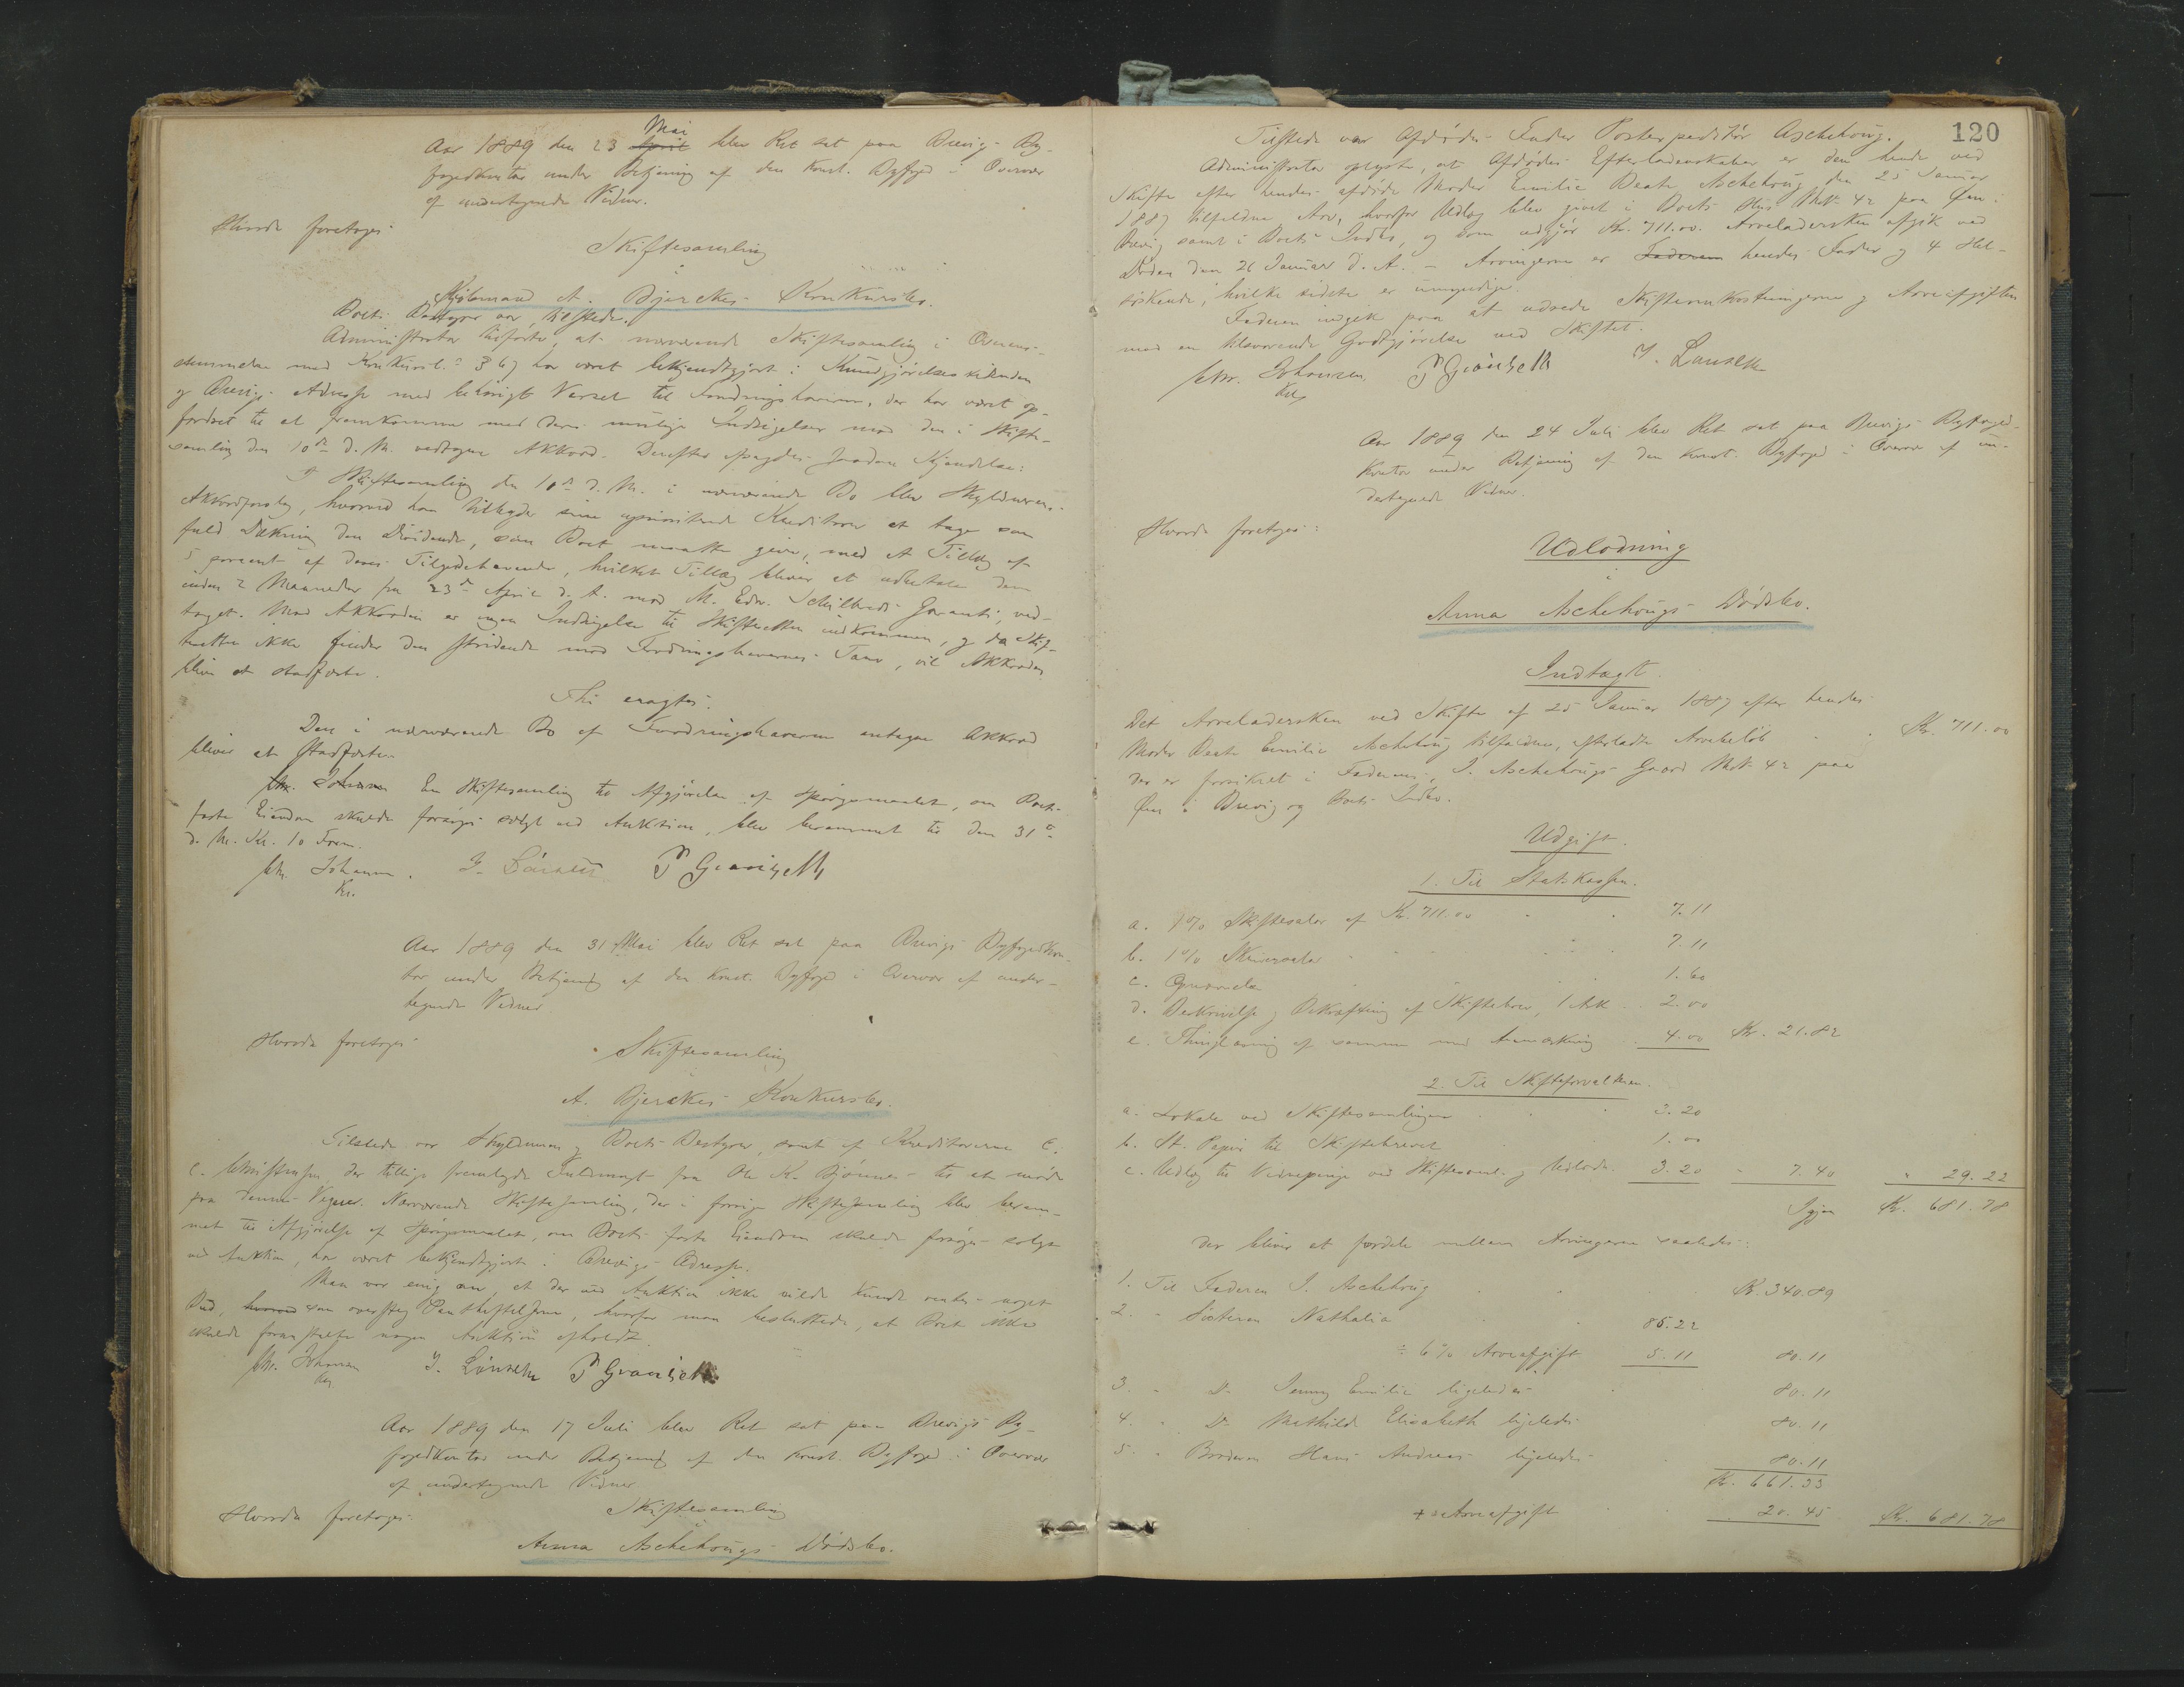 Aar 1889 den 23 April Mai blev Ret sat paa Brevig By-
fogedkontor under Betjening af den konst. Byfoged i Overvær
af undertegnede Vidner.
Hvorda foretoges
Skiftesamling
i
Kjöbmand A. Bjerckes Konkursbo.
Boets Bestyrer var tilstede.
Administrator tilførte, at nærværende Skiftesamling i Overens-
stemmelse med Konkursl. § 67 har været bekjendtgjort i Kundgjörelsestidenden
og Brevigs Adresse med behörigt Varsel til Fordringshaverne, der har været op-
fordret til at fremkomme med deres mulige Indsigelser mod den i Skifte-
samling den 10de d. M. vedtagne Akkord. Derefter afsagdes saadan Kjendelse:
I Skiftesamling den 10de d. M. i nærværende Bo blev Skyldnerens
Akkordforslag, hvorved han tilbyder sine uprioriterede Kreditorer at tage som
fuld Dækning den Dividende, som Boet maatte give, med et Tillæg af
5 procent af deres Tilgodehavende, hvilket Tillæg bliver at udbetale dem
inden 2 Maaneder fra 23de April d. A. mod M. Edv. Garanti, ved-
taget. Mod Akkorden er ingen Indsigelse til Skifteretten indkommen, og da Skif-
teretten ikke finder den stridende mod Fordringshavernes Tarv, vil Akkorden
blive at stadfæste.
Thi eragtes:
Den i nærværende Bo af Fordringshaverne antagne Akkord
bliver at stadfæste.
Chr. Johansen En Skiftesamling til Afgjörelse af Spörgsmaalet, om Boets
faste Eiendom skulde forsöges solgt ved Auktion, blev berammet til den 31te
d. M. Kl. 10 Form.
Chr. Johansen. J. Larsen P Grönseth
Kst.
Aar 1889 den 31 Mai blev Ret sat paa Brevigs Byfogedkon-
tor under Betjening af den konst. Byfoged i Overvær af under-
tegnede Vidner
Hvorda foretoges
Skiftesamling
i
A. Bjerckes Konkursbo.
Tilstede var Skyldneren og Boets Bestyrer, samt af Kreditorerne C.
C. der tillige fremlagde Fuldmagt fra Ole K. Bjönnes til at möde
paa dennes Vegne. Nærværende Skiftesamling, der i forrige Skiftesamling blev beram-
met til Afgjörelse af Spörgsmaalet, om Boets faste Eiendom skulde forsöges solgt
ved Auktion, har været bekjendtgjort i Brevigs Adresse.
Man var enig om, at der ved Auktion ikke vilde kunde ventes noget
Bud, hvorved som oversteg Pantheftelserne, hvorfor man besluttede, at Boet ikke
skulde foranstalte nogen Auktion afholdt.
Chr. Johansen J. Larsen P Grönseth
Kst.
Aar 1889 den 17 Juli blev Ret sat paa Brevigs By-
fogedkontor under Betjening af den konst. Byfoged i Overvær
af undertegnede Vidner
Hvorda foretoges
Skiftesamling
i
Anna Aschehougs Dödsbo.
120
Tilstede var Afdödes Fader Postexpeditör Aschehoug.
Administrator oplyste, at Afdödes Efterladenskaber er den hende ved
Skifte efter hendes afdöde Moder Emilie Beate Aschehoug den 25 Januar
1887 tilfaldne Arv, hvorfor Udlæg blev givet i Boets Hus M.N. 42 paa Øen i
Brevig samt i Boets Indbo, og som udgjör Kr. 711.00. Arveladersken afgik ved
Döden den 26 Januar d. A. – Arvingerne er Faderen hendes Fader og 4 Hel-
söskende, hvilke sidste er umyndige.
Faderen indgik paa at udrede Skifteomkostningerne og Arveafgiften
mod en tilsvarende Godtgjörelse ved Skiftet.
Chr. Johansen P Grönseth J. Larsen
Kst.
Aar 1889 den 24 Juli blev Ret sat paa Brevigs Byfoged-
kontor under Betjening af den konst. Byfoged i Overvær af un-
dertegnede Vidner.
Hvorda foretoges:
Udlodning
i
Anna Aschehougs Dödsbo.
Indtægt.
Det Arveladersken ved Skifte af 25 Januar 1887 efter hendes
Moder Beate Emilie Aschehoug tilfaldne, efterladte Arvebelöb Kr. 711.00
der er forsikret i Faderens, J. Aschehougs Gaard M.N. 42 paa
Øen i Brevig og Boets Indbo.
Udgift.
1. Til Statskassen.
a. 1% Skiftesalær af Kr. 711.00 7.11
b. 1% Skriversalær 7.11
c. 1.60
d. Beskrivelse og Bekræftning af Skiftebrev, 1 Ark 2.00
e. Thinglæsning af samme med Anmærkning 4.00 Kr. 21.82
2. Til Skifteforvalteren.
a. Lokale ved Skiftesamlingen 3.20
b. St. Papir til Skiftebrevet 1.00
c. Udlæg til Vidnepenge ved Skiftesaml. og Udlodn. 3.20 " 7.40 " 29.22
Igjen Kr. 681.78
der bliver at fordele mellem Arvingerne saaledes:
1. Til Faderen J. Aschehoug Kr. 340.89
2. " Søsteren Nathalia 85.22
÷ 6% Arveafgift 5.11 80.11
3. " Do Jenny Emilie ligeledes 80.11
4. " Do Mathilde Elisabeth ligeledes 80.11
5 " Broderen Hans Andreas ligeledes 80.11
Kr. 661.33
+ Arveafgift 20.45 Kr. 681.78